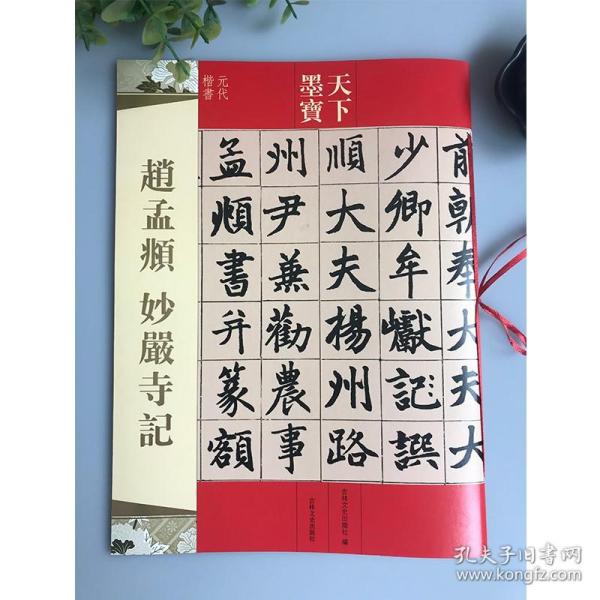 天下
墨寶
元代
楷書
趙孟頫 妙嚴寺記
前朝奉大夫大
少卿牟巘記譔
順大夫楊州路
州尹兼勸農事
孟頫書并篆額
吉林文史出版社 編
吉林文史出版社
孔夫子旧书网
www.kongfz.com